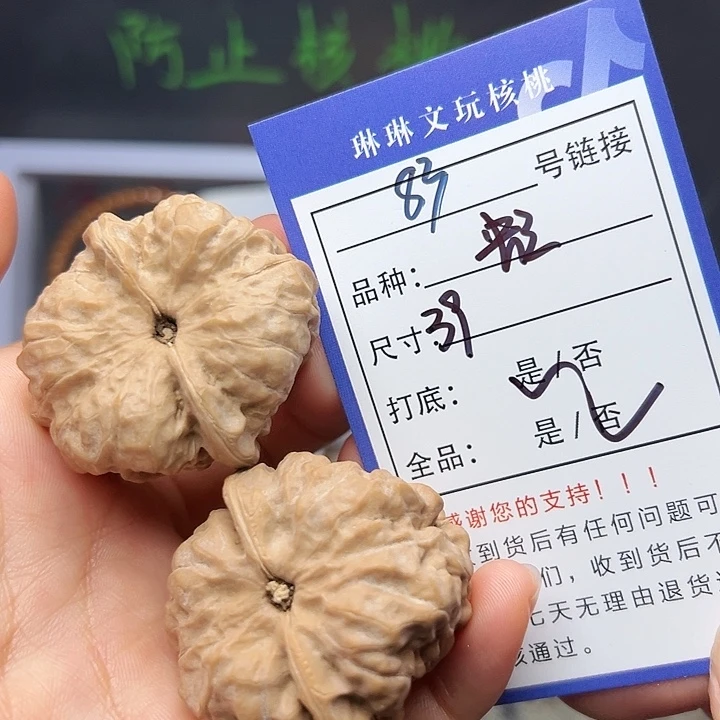 防止核桃
琳琳文玩核桃
83 号链接
品种：
尺寸：39
打底： 是/否
全品： 是/否
感谢您的支持！！！
到货后有任何问题可
们，收到货后不
七天无理由退货
通过。